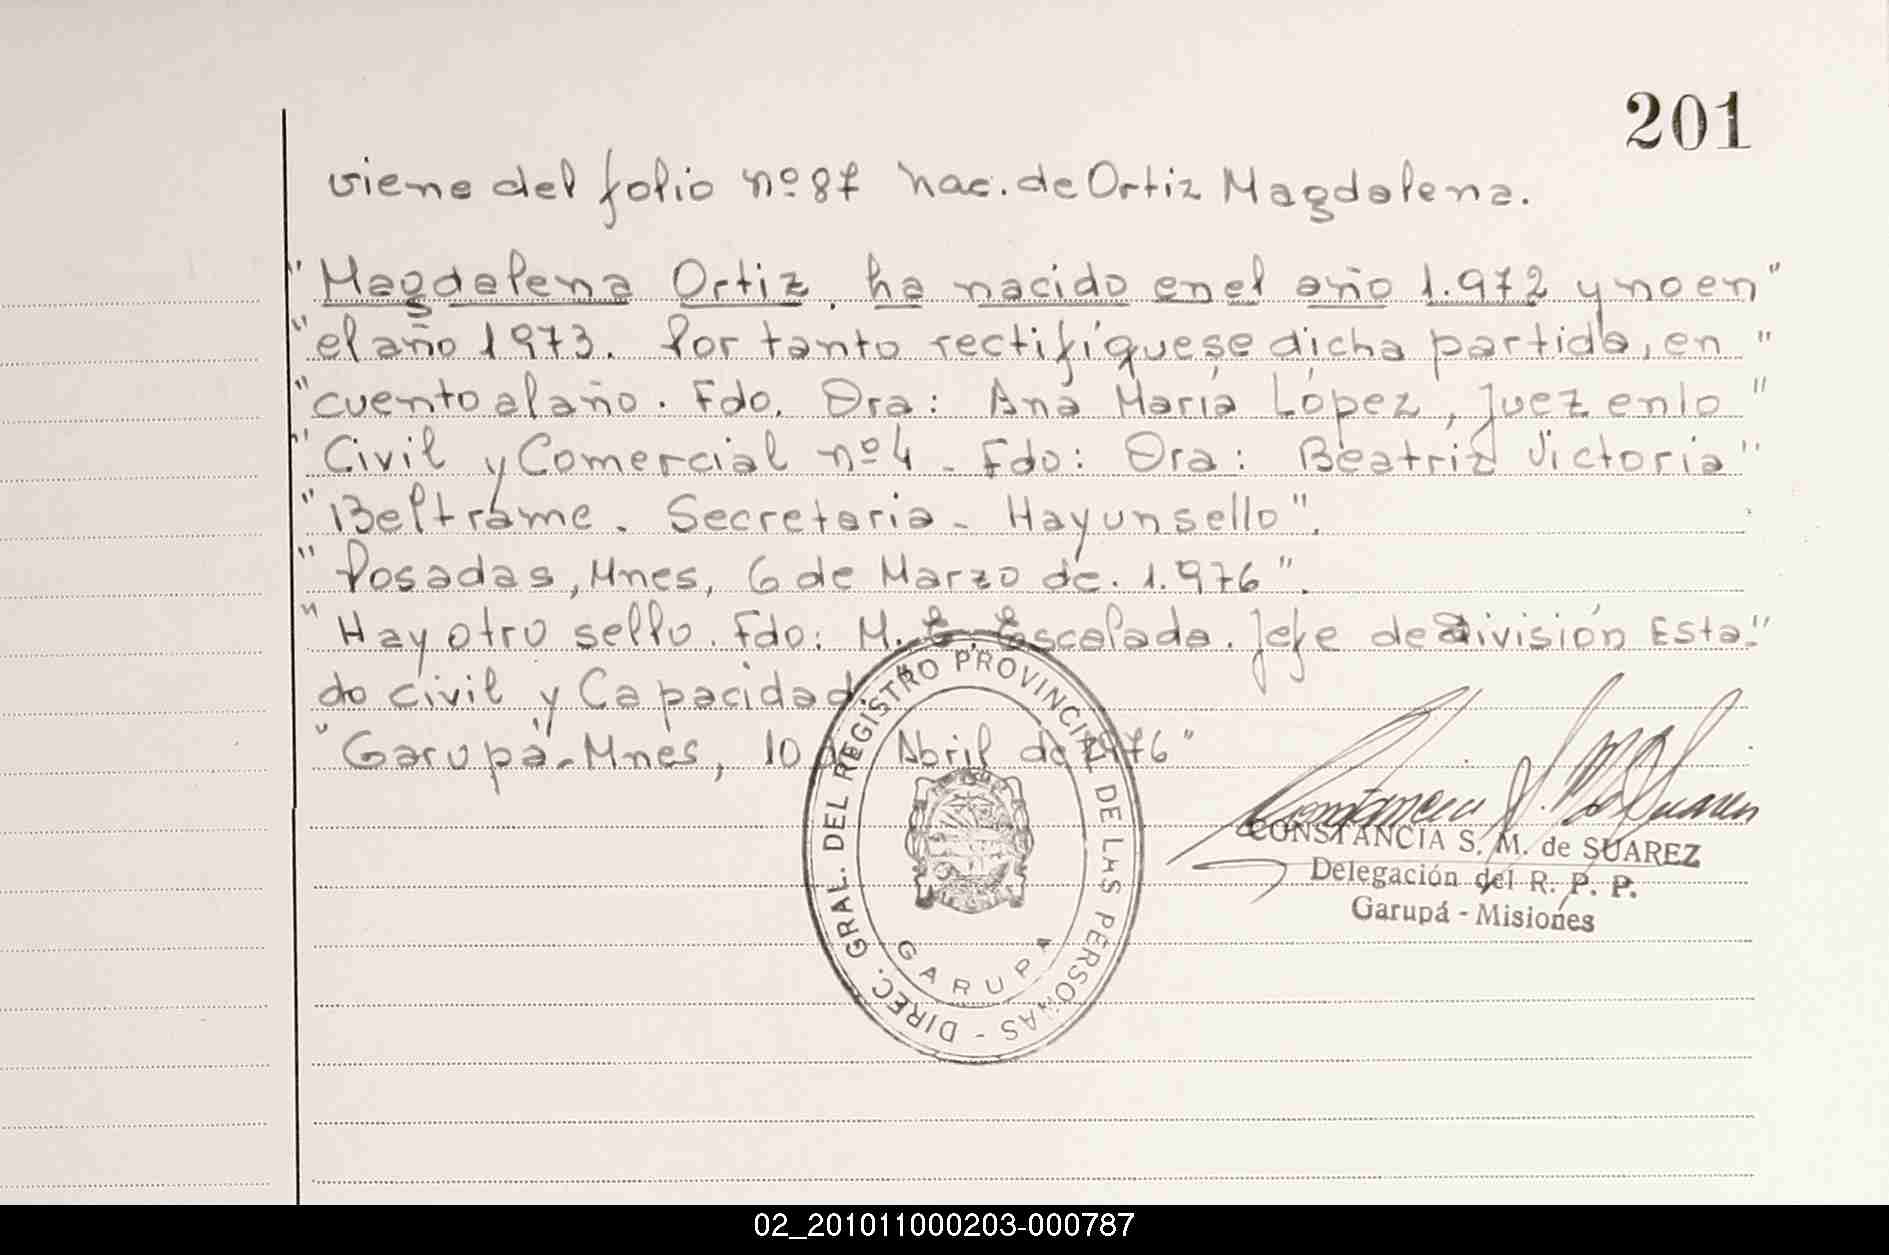 201
viene del folio nº 87 Nac. de Ortiz Magdalena.
" Magdalena Ortiz, ha nacido en el año 1.972 y no en "
" el año 1973. Por tanto rectifíquese dicha partida, en "
" cuento al año. Fdo. Dra: Ana María López, Juez en lo "
" Civil y Comercial nº 4 - Fdo: Dra: Beatriz Victoria "
" Beltrame. Secretaria - Hay un sello".
" Posadas, Mnes, 6 de Marzo de. 1.976".
" Hay otro sello. Fdo: M. E. Escalada. Jefe de División Esta- "
do civil y Capacidad"
" Garupá - Mnes, 10 de Abril de 1976"
DIREC. GRAL. DEL REGISTRO PROVINCIAL DE LAS PERSONAS -
GARUPA
CONSTANCIA S. M. de SUAREZ
Delegación del R. P. P.
Garupá - Misiones
02_201011000203-000787